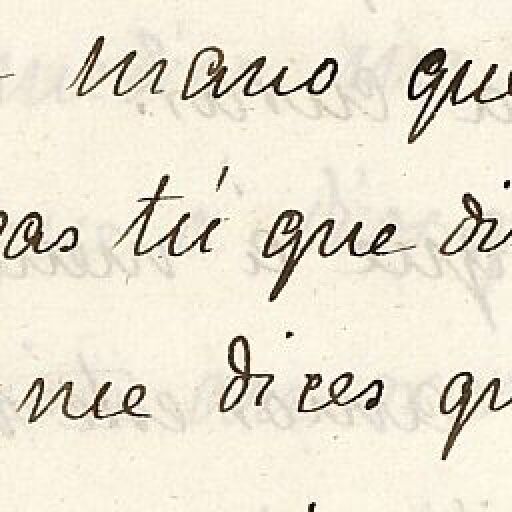 mano que
as tú que di
me dices qu